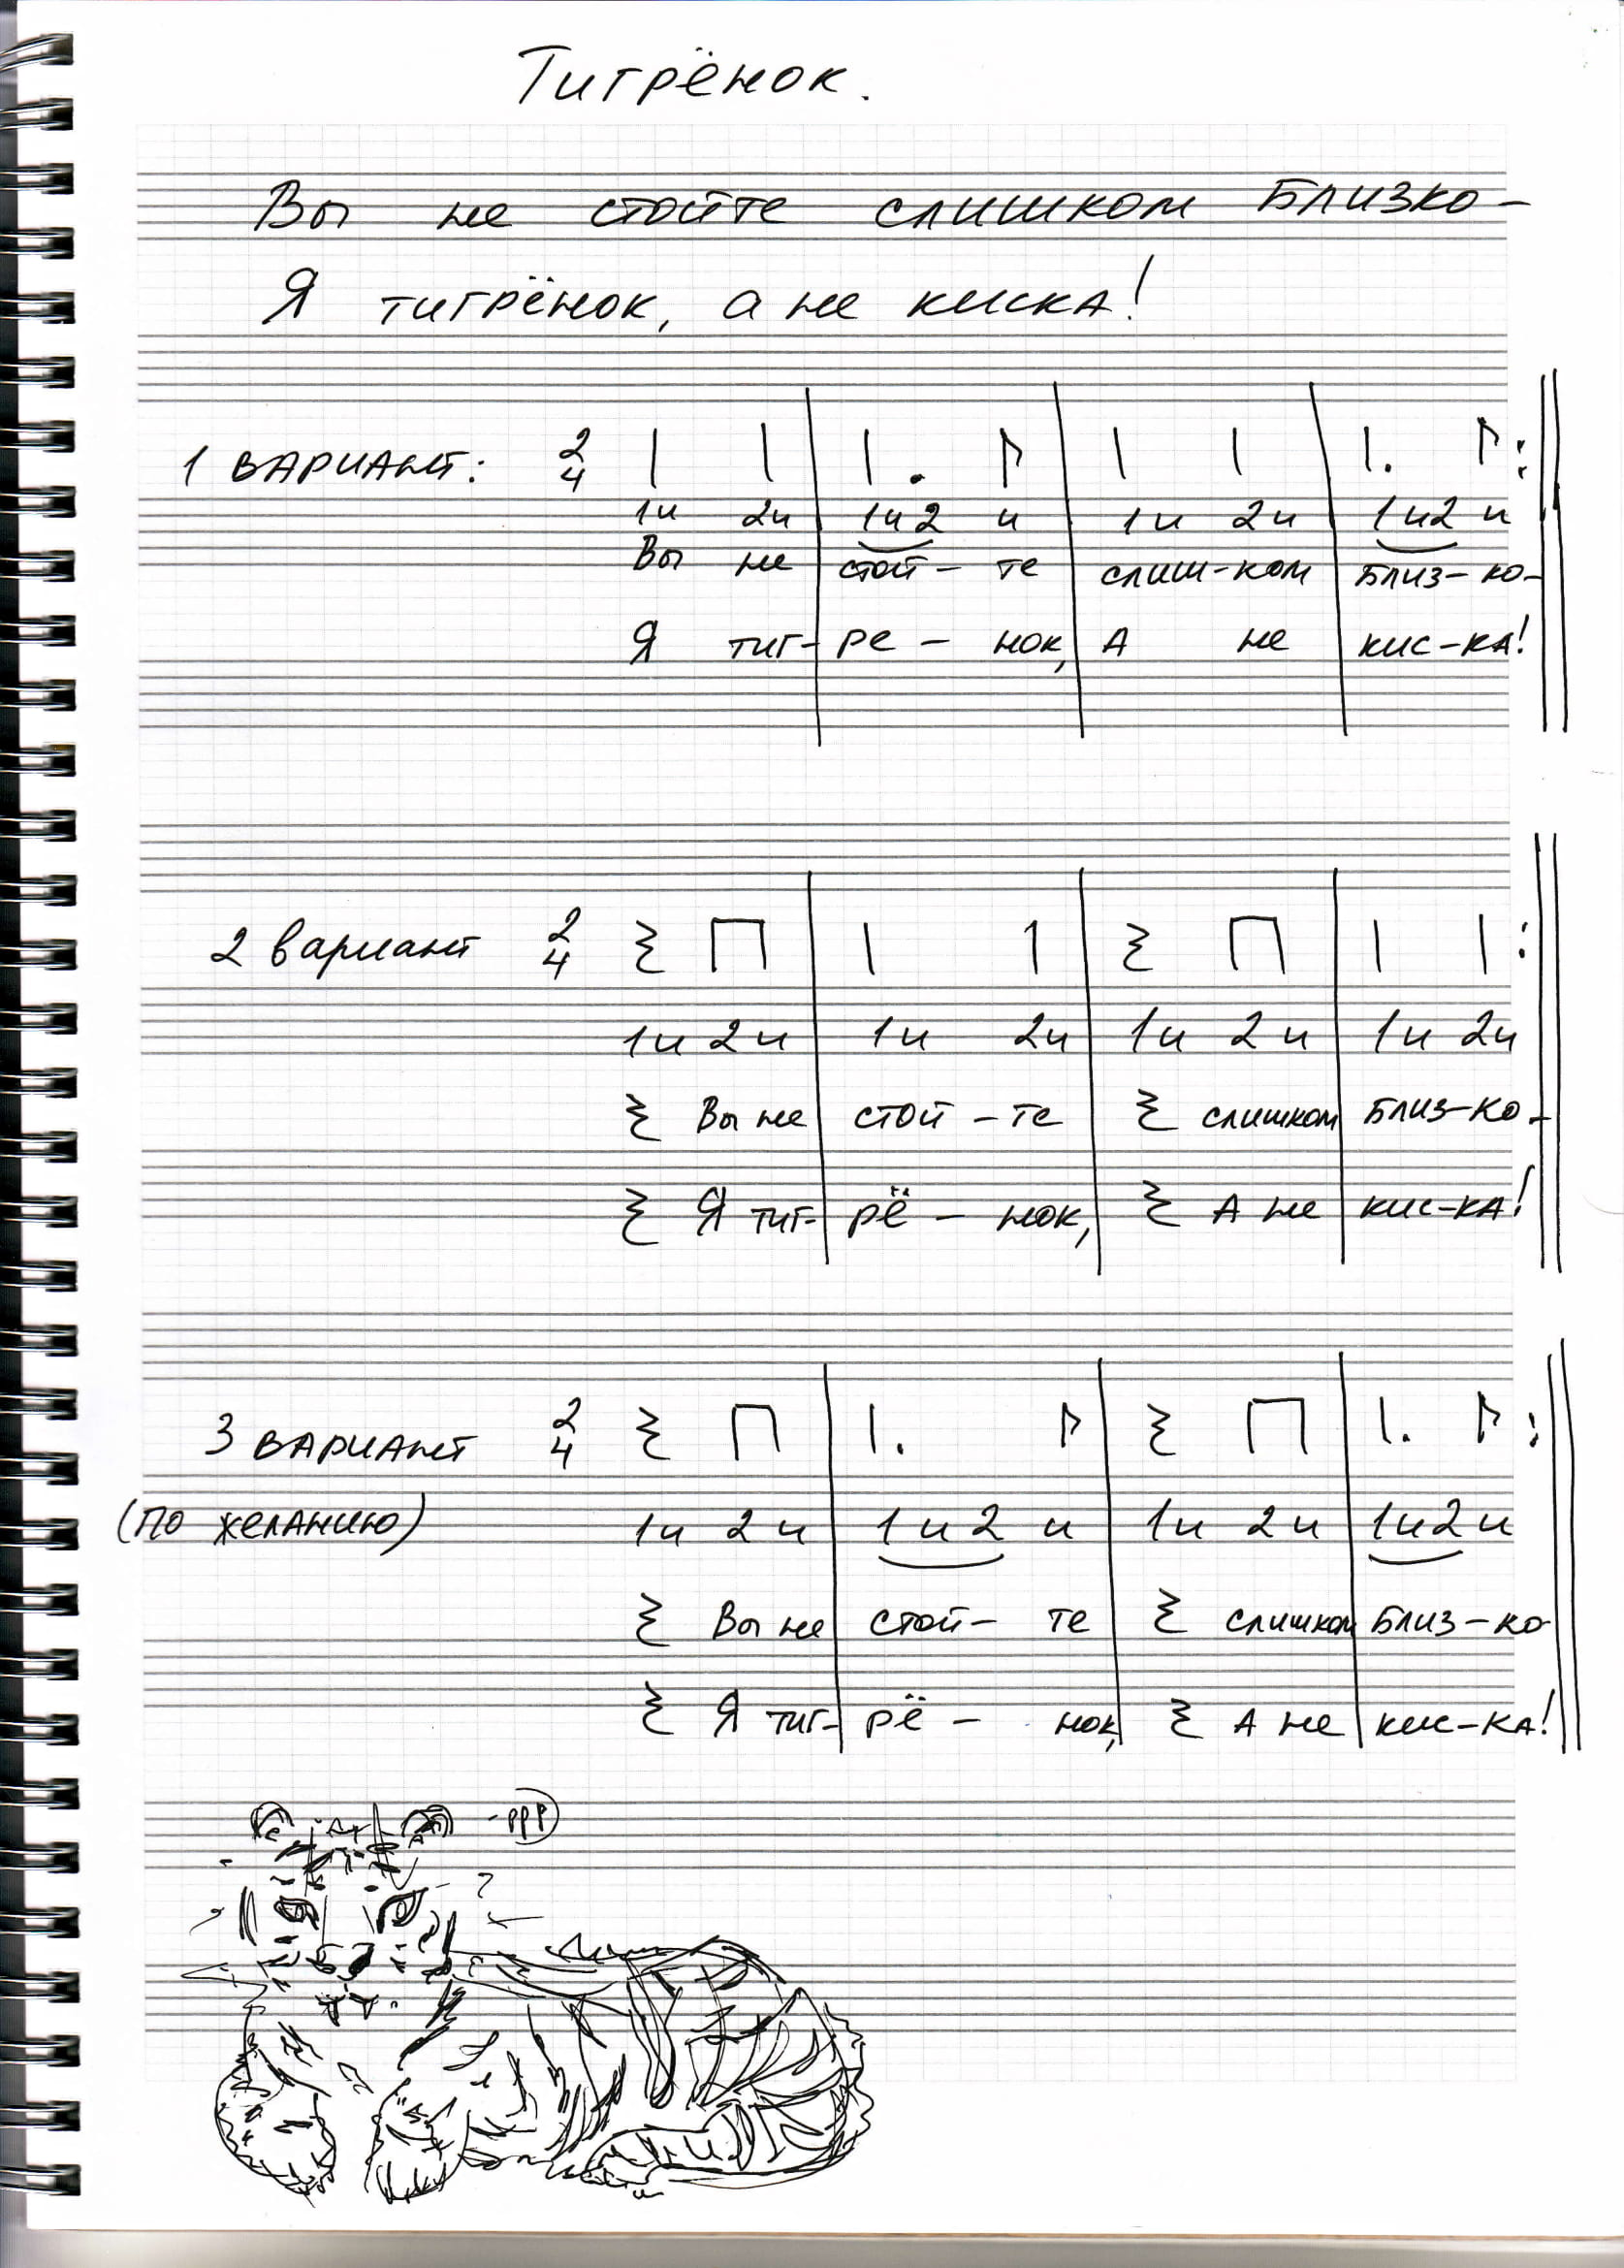 Тигрёнок.
Вы не стойте слишком близко –
Я тигрёнок, а не киска!
1 вариант: 2/4
1и 2и 1и2 и 1и 2и 1и2 и
Вы не стой – те слиш-ком близ-ко-
Я тиг- ре – нок, А не кис-ка!
2 вариант 2/4
1и 2и 1и 2и 1и 2и 1и 2и
Вы не стой – те слишком близ-ко-
Я тиг- рё – нок, А не кис-ка!
3 вариант 2/4
(по желанию) 1и 2и 1и2 и 1и 2и 1и2 и
Вы не стой- те слишком близ-ко-
Я тиг- рё – нок, А не кис-ка!
-ррр